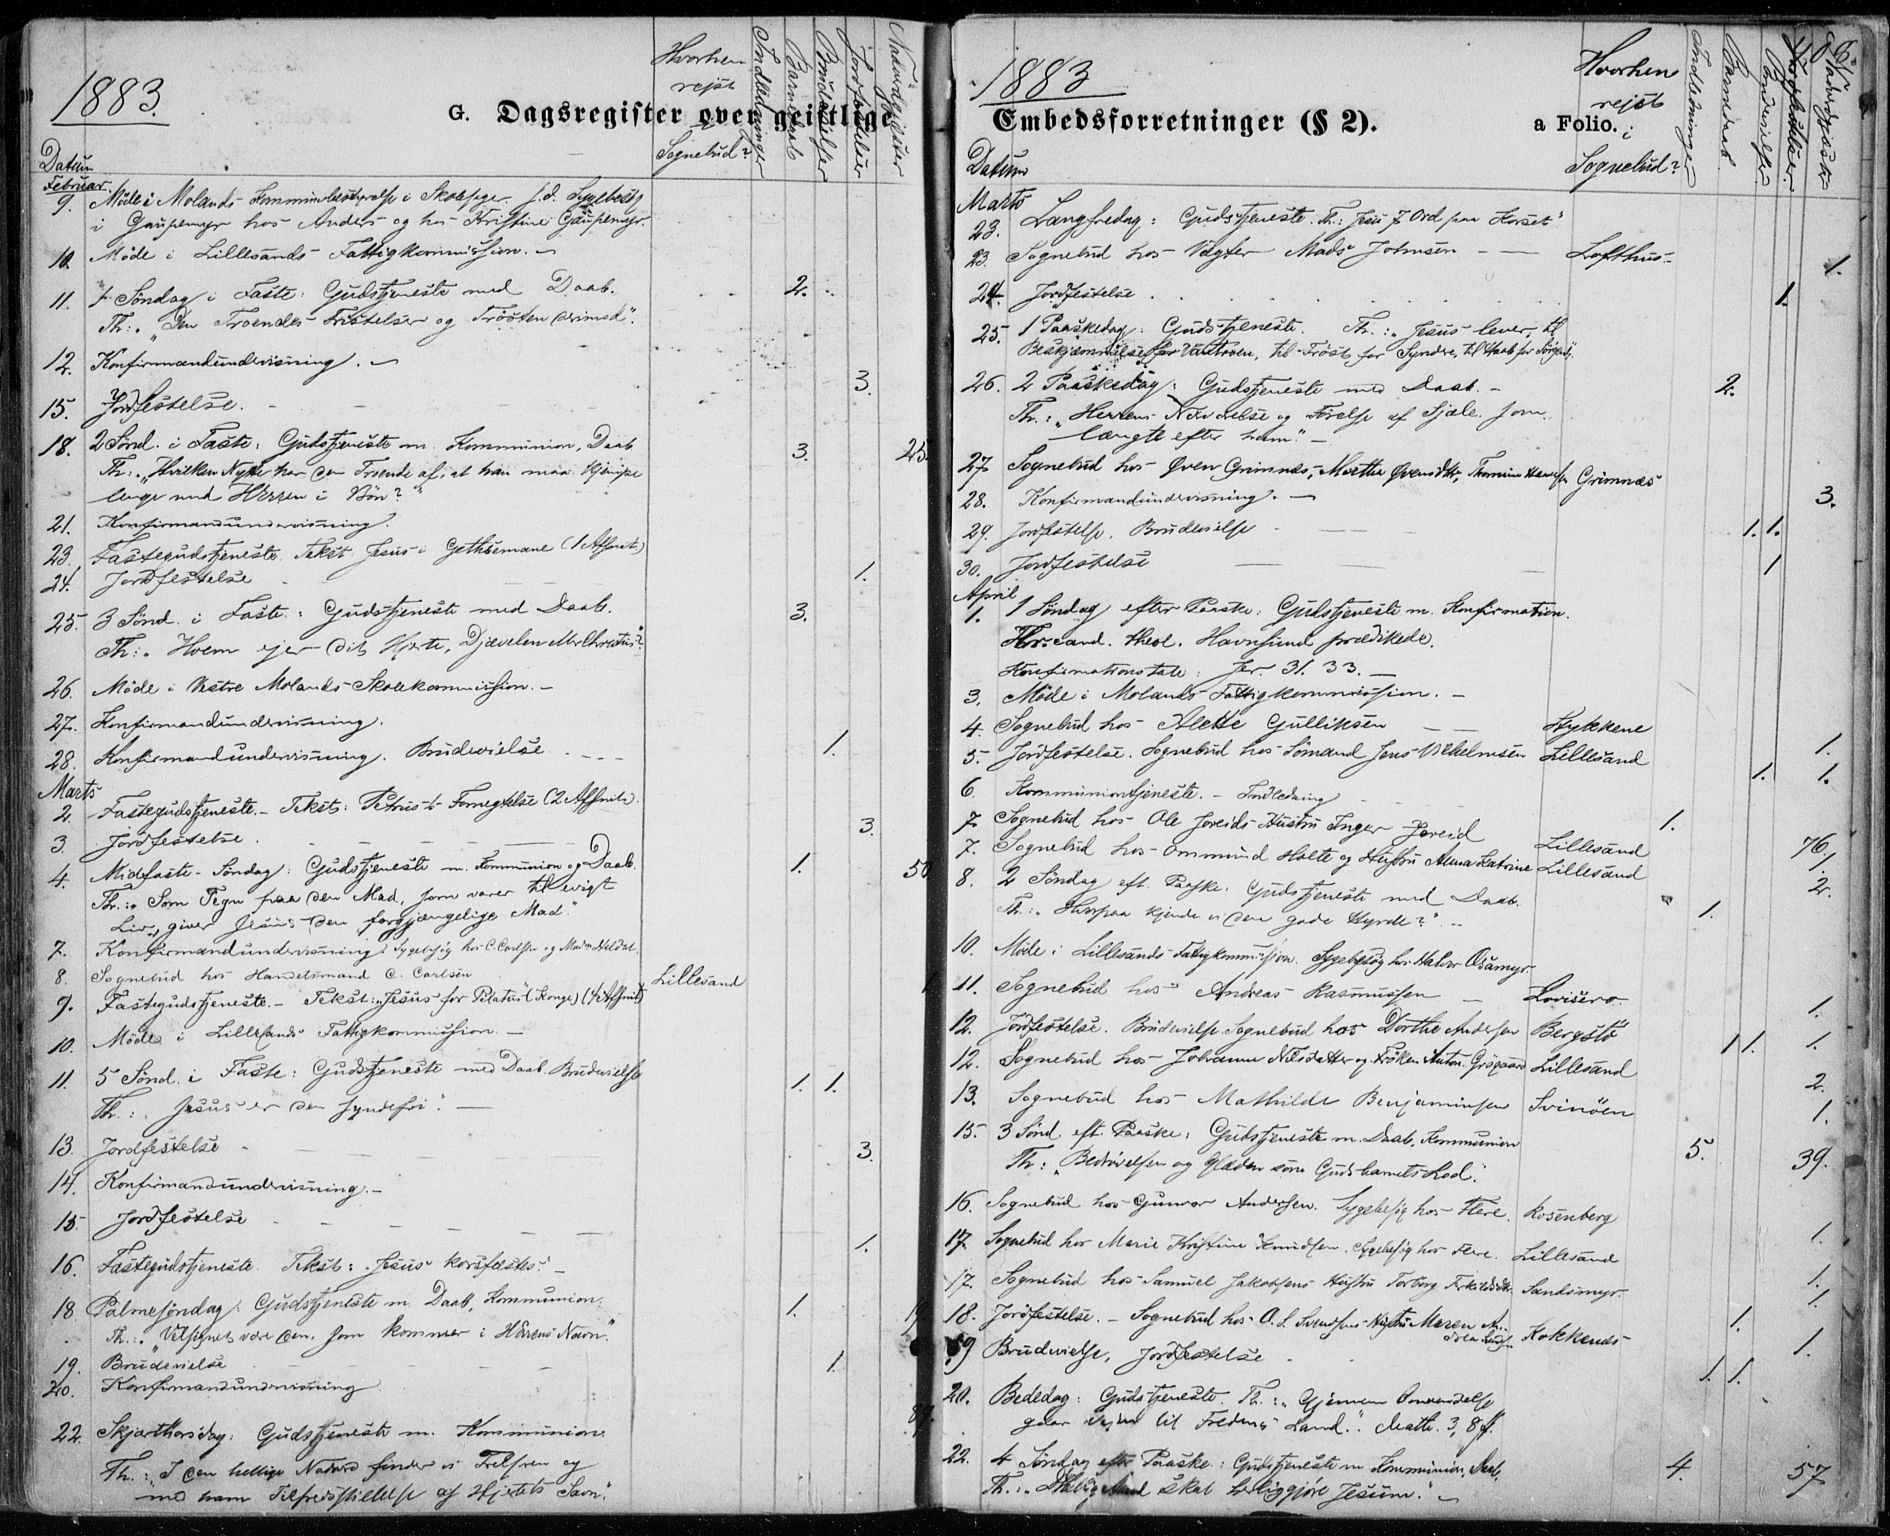 1883.
G. Dagsregister over geistlige
Hvorhen
rejst
i
Sognebud?
Indledninger
Barnedaab
Brudevielser
Jordfæstelser
Nadverdgjæster
Datum
Februar
9. Møde i Molands Kommunebestyrelse i
i Gaupemyr hos Anders og hos Kristine Gaupemyr.
10. Møde i Lillesands Fattigkommission.
11. 1 Søndag i Faste: Gudstjeneste med Daab. 2.
Th.: "Den Troendes Fristelser og Trösten derimod".
12. Konfirmandundervisning.
15. Jordfestelse. 3.
18. 2 Sönd. i Faste: Gudstjeneste m. Kommunion, Daab 3. 25.
Th.: "Hvilken Nytte har den Troende af, at han maa kjæmpe
længe med Herren i Bön?"
21. Konfirmandundervisning.
23. Fastegudstjeneste. Tekst: Jesus i Gethsemane (1 Afsnit)
24. Jordfestelse 1.
25. 3 Sönd. i Faste: Gudstjeneste med Daab. 3.
Th.: "Hvem ejer dit Hjerte, Djævelen eller Christus"?
26. Møde i Vestre Molands Skolekommission.
27. Konfirmandundervisning.
28. Konfirmandundervisning. Brudevielse 1.
Marts
2. Fastegudstjeneste. - Tekst: Petrus's Fornegtelse (2 Afsnit).
3. Jordfestelse. 3.
4. Midfaste-Søndag: Gudstjeneste m. Kommunion og Daab. 1. 50
Th.: "Som Tegn paa den Mad, som varer til evigt
Liv, giver Jesus den forgjængelige Mad."
7. Konfirmandundervisning. Sygebesøg hos C. Carlsen og Madm
8. Sognebud hos Handelsmand C. Carlsen Lillesand
9. Fastegudstjeneste. - Tekst: "Jesus for Pilatus" (Konge) (4 Afsnit)
10. Møde i Lillesands Fattigkommission.
11. 5 Sönd. i Faste: Gudstjeneste med Daab. Brudevielse 1. 1.
Th.: "Jesus er den Syndefri".
13. Jordfestelse 3.
14. Konfirmandundervisning.
15. Jordfestelse 1.
16. Fastegudstjeneste. Tekst: "Jesus korsfæstes".
18 Palmesøndag: Gudstjeneste m. Daab, Kommunion. 1. 19.
Th.: "Velsignet være den, som kommer i Herrens Navn."
19. Brudevielse 1.
20. Konfirmandundervisning
22. Skjærthorsdag: Gudstjeneste m. Kommunion.
Th.: "I den hellige Nadver finder vi Frelseren og
med ham Tilfredsstillelse af Hjertets Savn".
1883
Embedsforretninger (§ 2).
a Folio.
Hvorhen
rejst
i
Sognebud?
Indledninger
Barnedaab
Brudevielser
Jordfæstelser
Nadverdgjæster
Datum
Marts
23. Langfredag: Gudstjeneste. Th.: Jesu 7 Ord paa Korset"
23. Sognebud hos Vægter Mads Johnsen Lofthus. 1.
24. Jordfestelse 1.
25. 1 Paaskedag: Gudstjeneste. Th.: "Jesus lever, til
Beskjæmmelse for Vantroen, til Tröst for Syndere, til Haab for
26. 2 Paaskedag: Gudstjeneste med Daab. 2.
Th.: "Herrens Nærværelse og Frelse af Sjæle, som
længte efter ham."
27. Sognebud hos Øven Grimnes, Marthe Øvensdtr, Grimnæs
28. Konfirmandundervisning. 3.
29. Jordfestelse, Brudevielse 1. 1.
30. Jordfestelse 1
April
1. 1 Søndag efter Paaske: Gudstjeneste m. Konfirmation.
Hr. cand. theol. Havnsund prædikede.
Konfirmationstale: Jer. 31. 33.
3. Møde i Molands Fattigkommission.
4. Sognebud hos Alette Gulliksen Hykkene
5. Jordfestelse. Sognebud hos Sömand Jens Vilhelmsen Lillesand 1. 1.
6. Kommuniontjeneste. - Indledning
7. Sognebud hos Ole Joreids Hustru Inger Joreid Lillesand 1. 76
7. Sognebud hos Ommund Holte og Hustru Anna Katrine Lillesand 2.
8. 2 Søndag eft. Paaske. Gudstjeneste med Daab. 1.
Th.: "Hvorpaa kjende vi den gode Hyrde?"
10. Møde i Lillesands Fattigkommission. Sygebesøg hos Halvor
11. Sognebud hos Andreas Rasmussen Lovisero 1.
12. Jordfestelse. Brudevielse. Sognebud hos Dorthe Andersen Bergstö 1 1. 1.
12. Sognebud hos Johanne Nilsdatter og Fröken Anton. Grögaard Lillesand 2.
13. Sognebud hos Mathilde Benjaminsen Svinöen 1.
15. 3 Sönd. eft. Paaske: Gudstjeneste m. Daab, Kommunion 5. 39.
Th: "Bedrövelsen og Glæden som Guds barnets Lod."
16. Sognebud hos Gunvor Andersen. Sygebesøg hos Flere. Rosenberg 1.
17. Sognebud hos Marie Kristine Knudsen. Sygebesøg hos Flere. Lillesand 1.
17. Sognebud hos Samuel Jakobsens Hustru Torborg Sandsmyr 1.
18. Jordfestelse. - Sognebud hos O. S. Svendsens Hustru Maren Kokkenes 1. 1.
19 Brudevielse, Jordfestelse 1. 1.
20. Bededag: Gudstjeneste. Th.: "Gjennem Omvendelse
gaar Vejen til Fredens Land". Matth. 3, 8 ff.
22. 4 Søndag efter Paaske: Gudstjeneste m. Kommunion, Daab. 4. 57
Th.: "Hellig Aand skal herliggjöre Jesum."